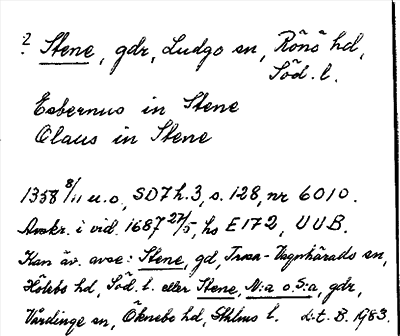 ? Stene, gdr, Ludgo sn, Rönö hd,
Söd. l.
Esbernus in Stene
Olaus in Stene
1358 8/11 u.o, SD7 h.3, s. 128, nr 6010.
Avskr. i vid. 1687 27/5, hs E172, UUB.
Kan äv. avse: Stene, gd, Trosa-Vagnhärads sn,
Hölebo hd, Söd. l. eller Stene, N:a o S:a, gdr,
Vårdinge sn, Öknebo hd, Sthlms l. L.t.B. 1983.